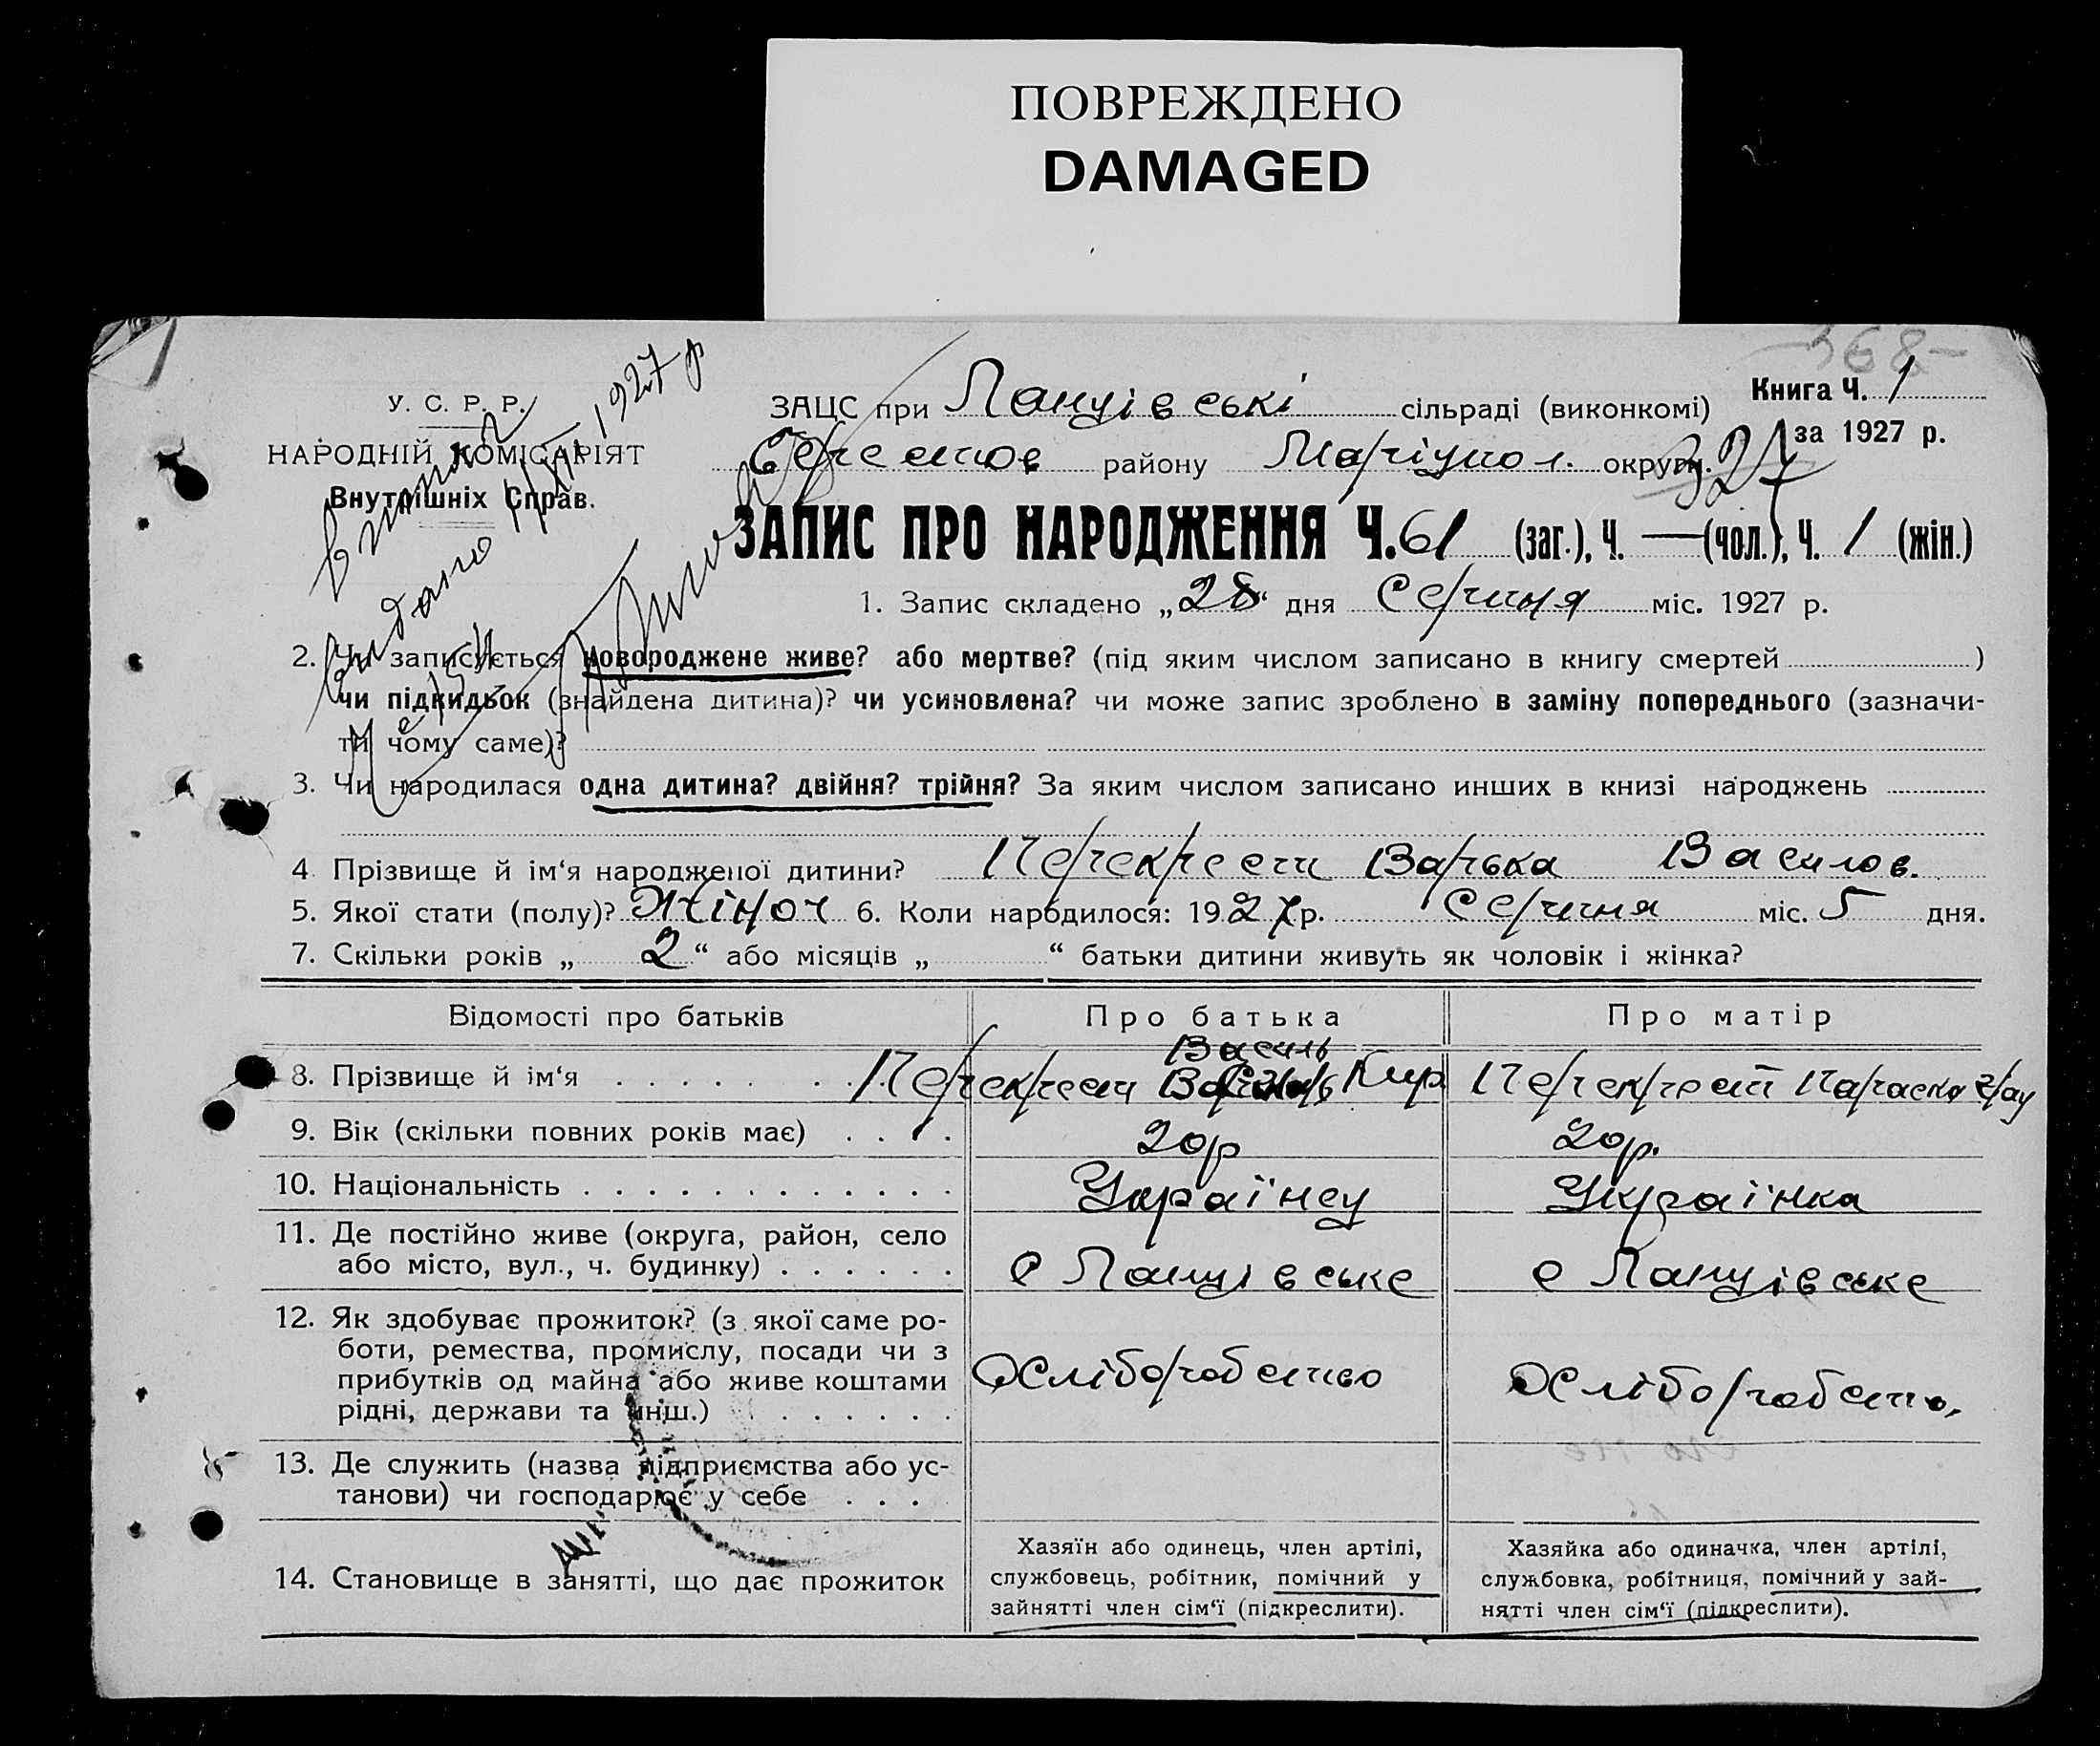 ПОВРЕЖДЕНО
DAMAGED
368
У. С. Р. Р.
НАРОДНІЙ КОМІСАРІЯТ
Внутрішніх Справ.
Видано 1927 р
ЗАЦС при сільраді (виконкомі)
Книга Ч. 1
за 1927 р.
району Маріупол. округи.
327
ЗАПИС ПРО НАРОДЖЕННЯ Ч. 61 (заг.), Ч. — (чол.), Ч. 1 (жін.)
1. Запис складено „28“ дня Серпня міс. 1927 р.
2. Чи записується новороджене живе? або мертве? (під яким числом записано в книгу смертей )
чи підкидьок (знайдена дитина)? чи усиновлена? чи може запис зроблено в заміну попереднього (зазначи-
ти чому саме)?
3. Чи народилася одна дитина? двійня? трійня? За яким числом записано инших в книзі народжень
4. Прізвище й ім‘я народженої дитини? Перекрест Варька Васильов.
5. Якої стати (полу)? Жіноч 6. Коли народилося: 1927 р. Серпня міс. 5 дня.
7. Скільки років „ 2 “ або місяців „ “ батьки дитини живуть як чоловік і жінка?
Відомості про батьків Про батька Про матір
Василь
8. Прізвище й ім‘я Перекрест Кир Перекрест Параска
9. Вік (скільки повних років має) 20р 20р.
10. Національність Українец Українка
11. Де постійно живе (округа, район, село
або місто, вул., ч. будинку)
12. Як здобуває прожиток? (з якої саме ро-
боти, ремества, промислу, посади чи з
прибутків од майна або живе коштами
рідні, держави та инш.)
Хліборобство Хліборобство,
13. Де служить (назва підприємства або ус-
танови) чи господарює у себе
14. Становище в занятті, що дає прожиток
Хазяїн або одинець, член артілі,
службовець, робітник, помічний у
зайнятті член сім‘ї (підкреслити).
Хазяйка або одиначка, член артілі,
службовка, робітниця, помічний у зай-
нятті член сім‘ї (підкреслити).